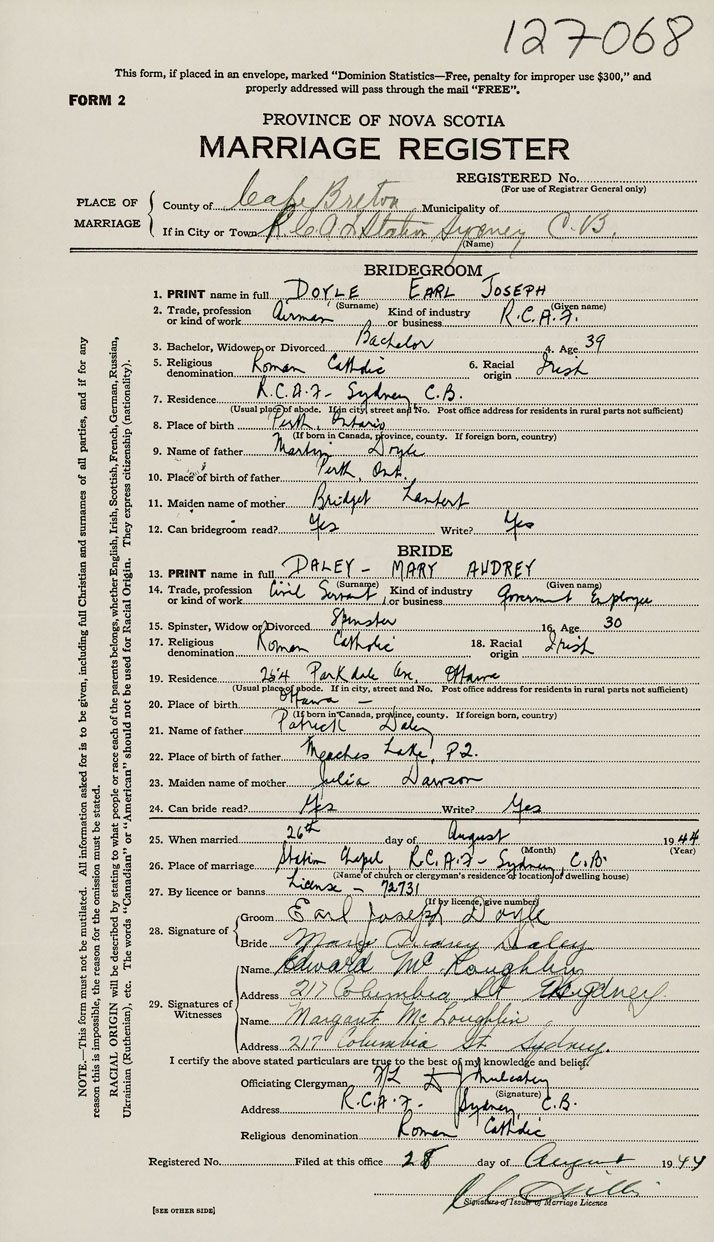 127068
This form, if placed in an envelope, marked “Dominion Statistics—Free, penalty for improper use $300,” and
properly addressed will pass through the mail “FREE”.
FORM 2
PROVINCE OF NOVA SCOTIA
MARRIAGE REGISTER
REGISTERED No.
(For use of Registrar General only)
PLACE OF MARRIAGE
County of Cape Breton Municipality of
If in City or Town R.C.A.F. Station Sydney C.B.
(Name)
BRIDEGROOM
1. PRINT name in full DOYLE EARL JOSEPH
(Surname) (Given name)
2. Trade, profession or kind of work Airman Kind of industry or business R.C.A.F.
3. Bachelor, Widower or Divorced Bachelor 4. Age 39
5. Religious denomination Roman Catholic 6. Racial origin Irish
7. Residence R.C.A.F - Sydney C.B.
(Usual place of abode. If in city, street and No. Post office address for residents in rural parts not sufficient)
8. Place of birth Perth, Ontario
(If born in Canada, province, county. If foreign born, country)
9. Name of father Martin Doyle
10. Place of birth of father Perth, Ont.
11. Maiden name of mother Bridget Lambert
12. Can bridegroom read? Yes Write? Yes
BRIDE
13. PRINT name in full DALEY - MARY AUDREY
(Surname) (Given name)
14. Trade, profession or kind of work Civil Servant Kind of industry or business Government Employee
15. Spinster, Widow or Divorced Spinster 16. Age 30
17. Religious denomination Roman Catholic 18. Racial origin Irish
19. Residence 264 Parkdale Ave, Ottawa
(Usual place of abode. If in city, street and No. Post office address for residents in rural parts not sufficient)
20. Place of birth Ottawa -
(If born in Canada, province, county. If foreign born, country)
21. Name of father Patrick Daley
22. Place of birth of father Meaches Lake, P.Q.
23. Maiden name of mother Julia Dawson
24. Can bride read? Yes Write? Yes
25. When married 26th day of August 1944
(Month) (Year)
26. Place of marriage Station Chapel, R.C.A.F - Sydney, C.B.
(Name of church or clergyman's residence or location of dwelling house)
27. By licence or banns License - 72731
(If by licence, give number)
28. Signature of
Groom Earl Joseph Doyle
Bride Mary Audrey Daley
29. Signatures of Witnesses
Name Edward McLoughlin
Address 217 Columbia St Sydney
Name Margaret McLoughlin
Address 217 Columbia St. Sydney.
I certify the above stated particulars are true to the best of my knowledge and belief.
Officiating Clergyman F/L
(Signature)
Address R.C.A.F - Sydney, C.B.
Religious denomination Roman Catholic
Registered No. Filed at this office 28 day of August 1944
Signature of Issuer of Marriage Licence
[SEE OTHER SIDE]
NOTE.—This form must not be mutilated. All information asked for is to be given, including full Christian and surnames of all parties, and if for any
reason this is impossible, the reason for the omission must be stated.
RACIAL ORIGIN will be described by stating to what people or race each of the parents belongs, whether English, Irish, Scottish, French, German, Russian,
Ukrainian (Ruthenian), etc. The words “Canadian” or “American” should not be used for Racial Origin. They express citizenship (nationality).